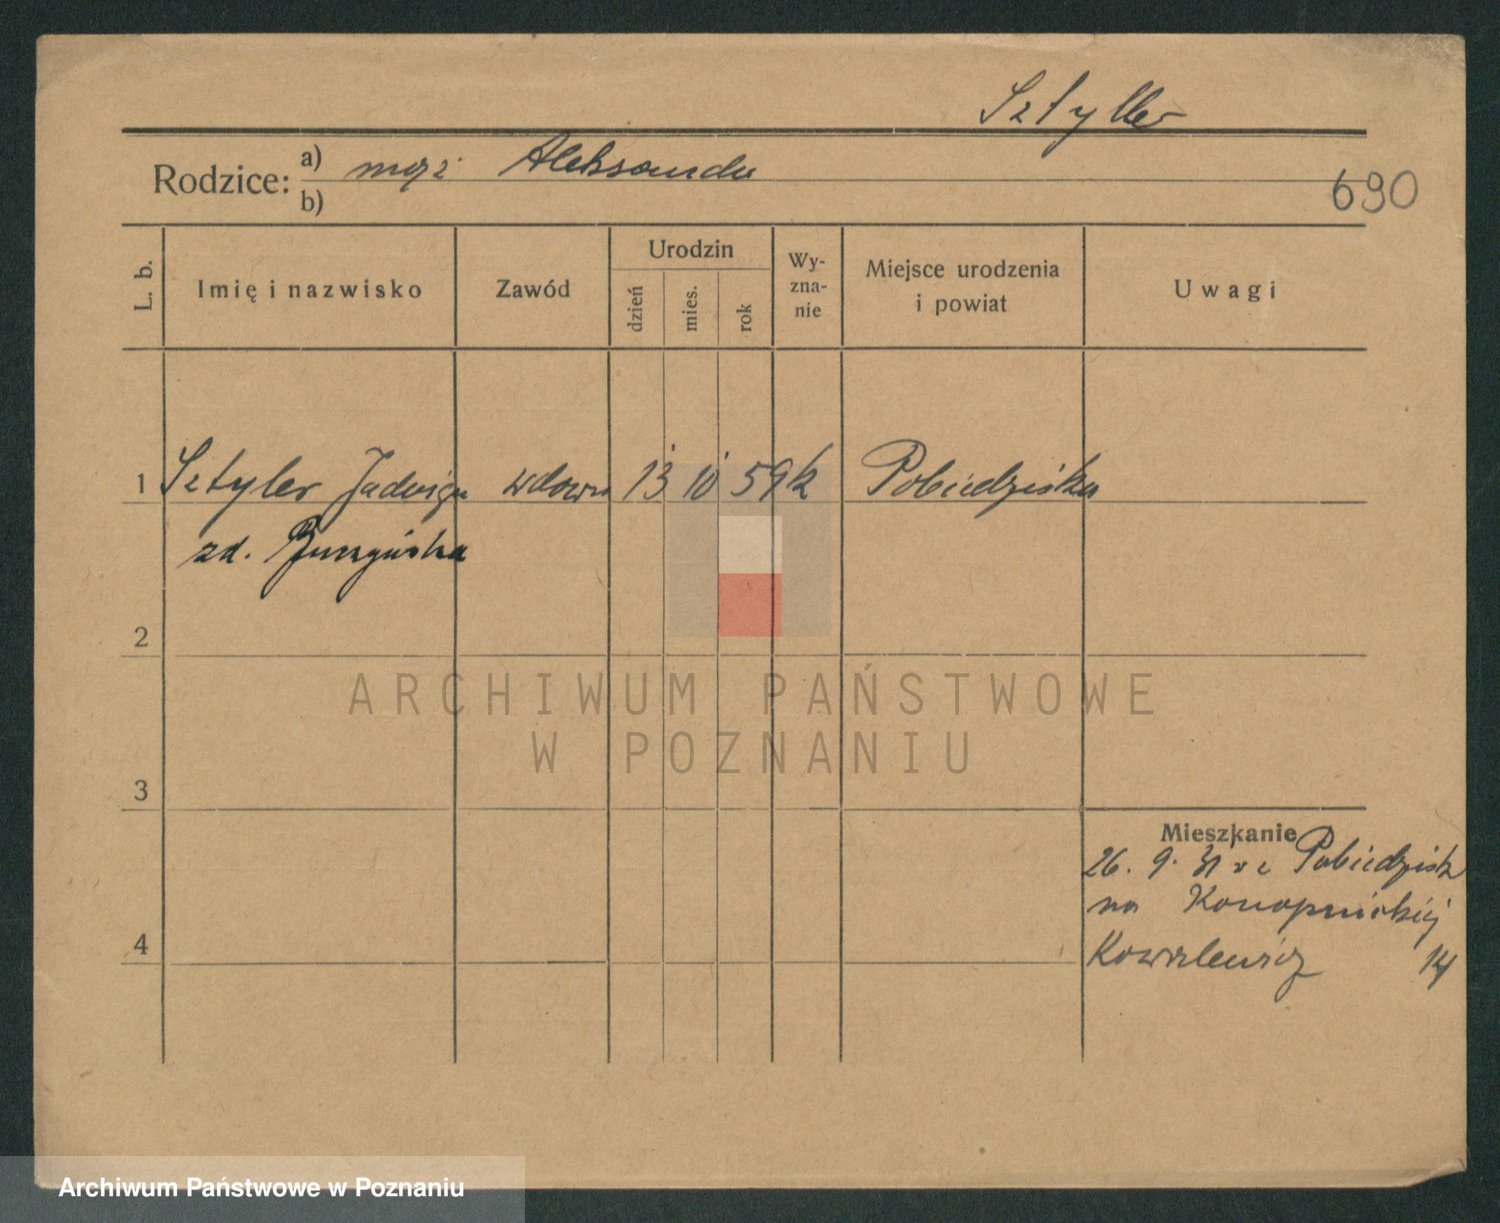 Sztyller
Rodzice: a) mąż Aleksander
b)
690
L. b.
Imię i nazwisko
Zawód
Urodzin
dzień
mies.
rok
Wy-
zna-
nie
Miejsce urodzenia
i powiat
Uwagi
1 Sztyler Jadwiga wdowa 13 10 59 k Pobiedziska
zd.
2
3
4
Mieszkanie
26. 9. 31 Pobiedzisk
na Konopnickiej
Kowalewicz 14
ARCHIWUM PAŃSTWOWE
W POZNANIU
Archiwum Państwowe w Poznaniu